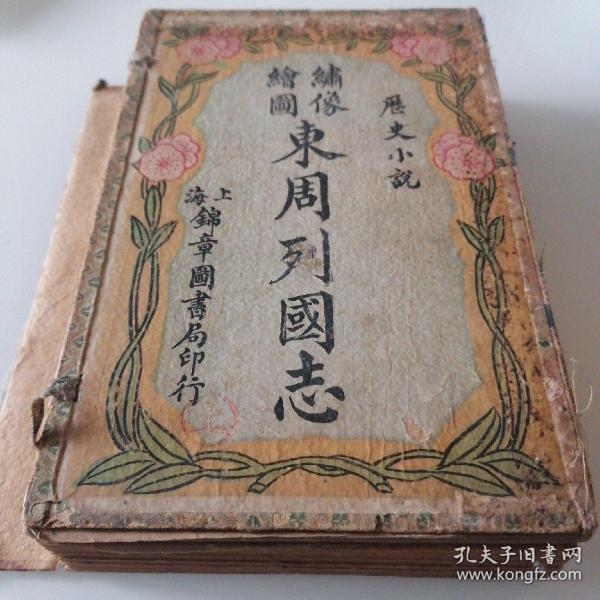 歷史小說
繡像
繪圖
東周列國志
上海
錦章圖書局印行
上
孔夫子旧书网
www.kongfz.com